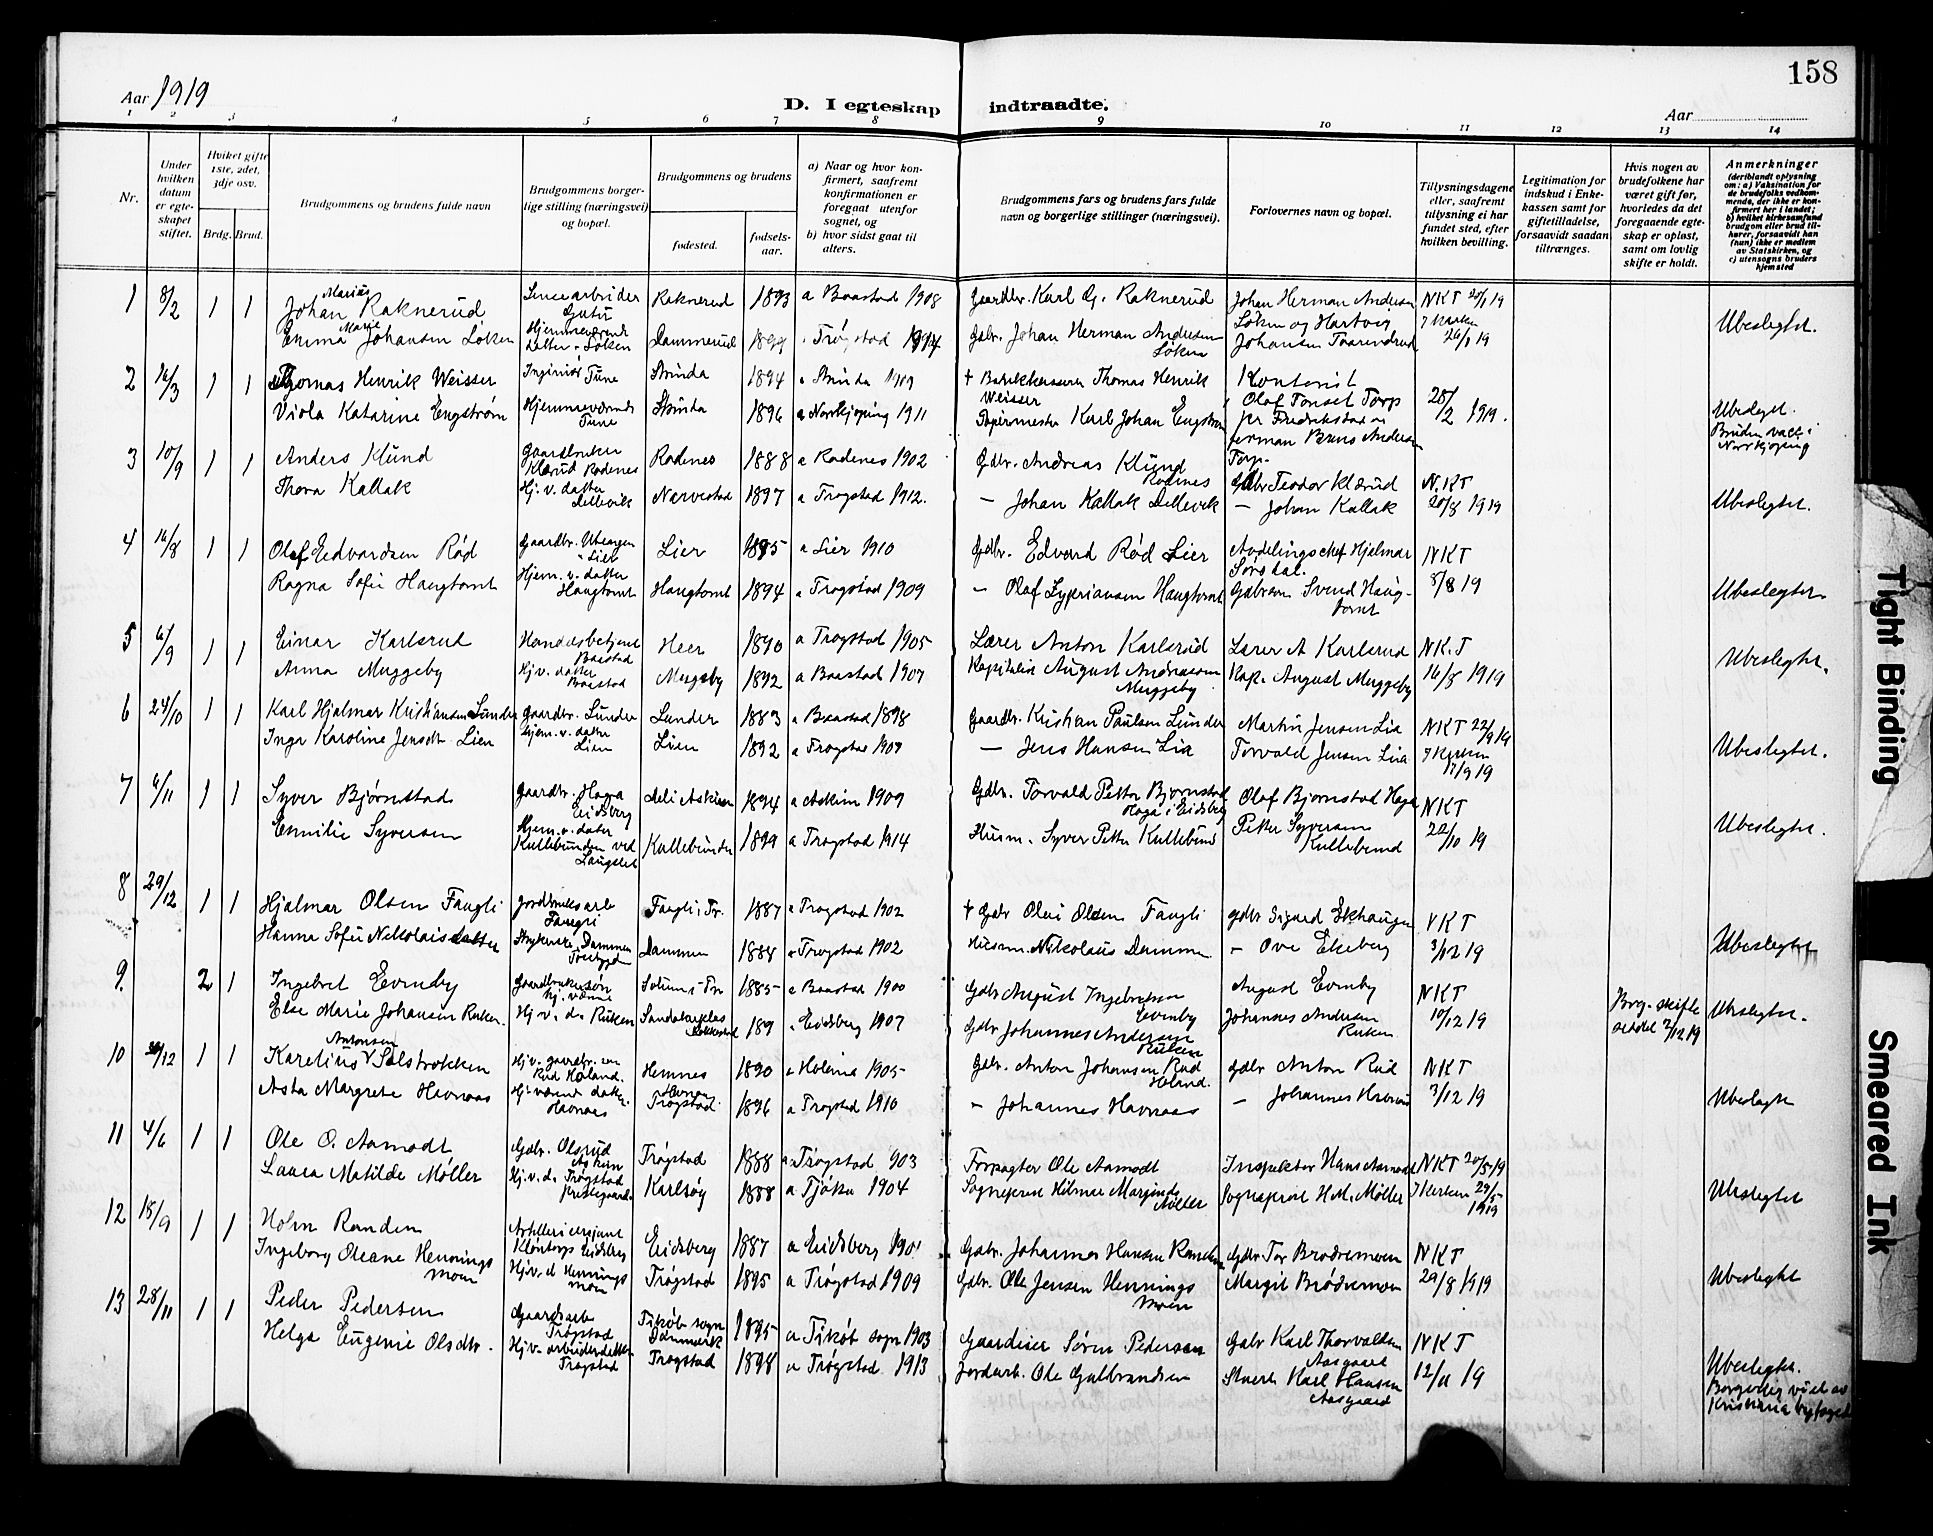 158
Aar 1919
D. I egteskap indtraadte.
Aar
1 2 3 4 5 6 7 8 9 10 11 12 13 14
Nr.
Under hvilken datum er egteskapet stiftet.
Hvilket gifte 1ste, 2det, 3dje osv.
Brdg. Brud.
Brudgommens og brudens fulde navn
Brudgommens borgerlige stilling (næringsvei) og bopæl.
Brudgommens og brudens
fødested.
fødselsaar.
a) Naar og hvor konfirmert, saafremt konfirmationen er foregaat utenfor sognet, og
b) hvor sidst gaat til alters.
Brudgommens fars og brudens fars fulde navn og borgerlige stillinger (næringsvei).
Forlovernes navn og bopæl.
Tillysningsdagene eller, saafremt tillysning ei har fundet sted, efter hvilken bevilling.
Legitimation for indskud i Enkekassen samt for giftetilladelse, forsaavidt saadan tiltrænges.
Hvis nogen av brudefolkene har været gift før, hvorledes da det foregaaende egteskap er opløst, samt om lovlig skifte er holdt.
Anmerkninger
(deriblandt oplysning om: a) Vaksination for de brudefolks vedkommende, der ikke er konfirmert her i landet; b) hvilket kirkesamfund brudgom eller brud tilhører, forsaavidt han (hun) ikke er medlem av Statskirken, og c) utensogns bruders hjemsted
1 8/2 1 1 Johan Marius Raknerud Raknerud 1893 a Baastad 1908 Gaardbr. Karl G. Raknerud Johan Herman Andersen NKT
Emma Marie Johansen Løken Hjemmeværende datter Løken Dammerud Trøgstad 1914 Gdbr. Johan Herman Andersen Løken Løken og Hartvig Johansen 26/1 19 Ubeslegtet.
2 16/3 1 1 Thomas Henrik Weisser Ingeniør Tune Strinda 1894 Strinda 1909 † Thomas Henrik Weisser Kontorist Olaf Tonset Torp 28/2 1919.
Viola Katarine Engstrøm Hjemmeværende Tune 1896 a Norrkjøping 1911 Papirmester Karl Johan Engstrøm pr Fredrikstad og Herman Bruns Andersen Torp. Bruden vacc. i Norrkjøping
3 10/9 1 1 Anders Klund Gaardbruker Rødenes Rødenes 1888 a Rødenes 1902 Gdbr. Andreas Klund Rødenes Gdbr Teodor Klærud N.KT
Thora Kallak Hj. v. datter Dellevik 1897 a Trøgstad 1912. — Johan Kallak Dellevik — Johan Kallak 20/8 1919 Ubeslegtet.
4 16/8 1 1 Olaf Edvardsen Rød Gaardbr. Lier Lier 1895 a Lier 1910 Gdbr. Edvard Rød Lier Avdelingschef Hjelmar Sørsdal. NKT
Ragna Sofie Haugtomt Hjem. v. datter Haugtomt Haugtomt 1894 a Trøgstad 1909 — Olaf Syvriansen Haugtomt Svend Haugtomt 5/8 19 Ubeslegtet
5 6/9 1 1 Einar Karlsrud Handelsbetjent Baastad Heer 1890 a Trøgstad 1905 Lærer Anton Karlsrud Lærer A Karlsrud NK.T
Anna Muggeby Hj v. datter Baastad Muggeby 1892 a Baastad 1907 August Andreassen Muggeby Kap. August Muggeby 16/8 1919 Ubeslegtet.
6 24/10 1 1 Karl Hjalmar Kristiansen Lunder Gaardbr. Lunder Lunder 1883 a Baastad 1898 Gaardbr. Kristian Paulsen Lunder Martin Jensen Lia NKT 22/9 19
Inga Karoline Jensdtr Lien Hjem. v. datter Lien Lien 1892 a Trøgstad 1907 — Jens Hansen Lia Torvald Jensen Lia I Kirken 17/9 19 Ubeslegtet.
7 6/11 1 1 Syver Bjørnstad Gaardbr. Haga Eidsberg Askim 1894 a Askim 1909 Gdbr. Torvald Petter Bjørnstad Haga i Eidsberg Olaf Bjørnstad Haga NKT
Emilie Syversen Hjem. v. dater Kullebunden ved Langslet Kullebunden 1899 a Trøgstad 1914 Husm. Syver Petter Kullebund Petter Syversen Kullebund 22/10 19 Ubeslegtet.
8 29/12 1 1 Hjalmar Olsen Faugli Jordbruksarb Faugli Faugli i Tr. 1887 a Trøgstad 1902 † Gdbr Olai Olsen Faugli Gdbr Sigurd Ekhaugen NKT
Hanna Sofie Nikolaisdatter Dammen Dammen 1884 a Trøgstad 1902 Husm. Nikolaus Dammen — Ove Ekeberg 3/12 19 Ubeslegtet
9. 2 1 Ingebret Evenby Gaardbrukersøn hj. værende i Tr 1885 a Baastad 1900 Gdbr August Ingebretsen Evenby August Evenby NKT
Else Marie Johansen Ruken Hj v. d. Ruken 189 a Eidsberg 1907 Gdbr Johannes Andersen Ruken Johannes Andersen Ruken 10/12 19 Brg. skifte seddel 2/12 19 Ubeslegtet.
10 30/12 1 1 Karelius Antonsen Sølstrokken Hj v. gaardbr. søn Rud Høland. Hemnes 1890 a Hølena 1905 Gdbr. Anton Johansen Rud Høland. Gdbr Anton Rud NKT
Asta Margrete Havnaas Hj. værend datter. Havnaas Havnaas Trøgstad 1896 a Trøgstad 1910 — Johannes Havnaas — Johannes Havnaas 3/12 19 Ubeslegte
11 4/6 1 1 Ole O. Aamodt Gdbr. Olsrud Askim Trøgstad 1888 a Trøgstad 903 Forpagter Ole Aamodt Inspektør Hans Aamodt NKT 20/5 19
Laura Matilde Møller Hj. v. d. Trøgstad Prestegaard Karlsøy 1888 a Tjøkø 1904 Sogneprest Hilmar Møller Sogneprest H.M. Møller I Kirken 29/5 1919 Ubeslegtet
12 18/9 1 1 Holm Randen Artillerisersjant Eidsberg Eidsberg 1887 a Eidsberg 1901 Gdbr. Johannes Hansen Randen Gdbr. Tor Brødremoen NKT
Ingeborg Oleane Henningsmoen Hj v. d Henningsmoen Trøgstad 1895 a Trøgstad 1909 Gdbr. Ole Jensen Henningsmoen Margit Brødremoen 29/8 1919 Ubeslegtet
13 28/11 1 1 Peder Pedersen Gaardsarb Trøgstad Tikøb sogn Danmark 1895 a Tikøb sogn 1903 Gaardeier Søren Pedersen Gdbr Karl Thorvaldsen Aasgaard NKT
Helga Eugenie Olsdtr. Hj v. arbeiderdatter Trøgstad Trøgstad 1898 a Trøgstad 1913 Jordarb. Ole Gulbrandsen Karl Hansen Aasgaard 12/11 19 Ubeslegtet. Borgerlig viet av Kristiania byfoged
Tight Binding
Smeared Ink